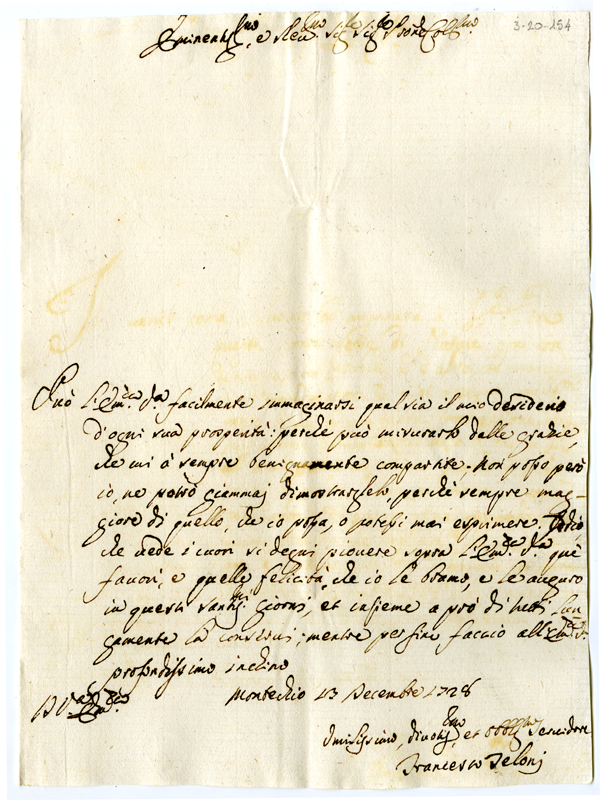 3-20-154
Eminent.mo, e Rev.mo Sig.r Sig.r P.rone Col.mo
Può l'Em.za V.ra facilmente immaginarsi qual sia il mio desiderio
d'ogni sua prosperità: perché può misurarlo dalle grazie,
che mi à sempre benignamente compartite. Non posso però
io, ne potrò giammaj dimostrarglielo, perché sempre mag-
giore di quello, che io possa, o potessi mai esprimere. Iddio
che vede i cuori si degni piovere sopra l'Em.za V.ra que'
favori, e quelle felicità, che io le bramo, e le auguro
in questi santiss.mi giorni, et insieme a prò di tutti lun-
gamente la conservi; mentre per fine faccio all'Em.za V.ra
profondissimo inchino
D V.ra Em.za
Montecchio 13 Decembre 1728
Umilissimo, divotis.mo, et obblig.mo Servidore
Francesco Teloni